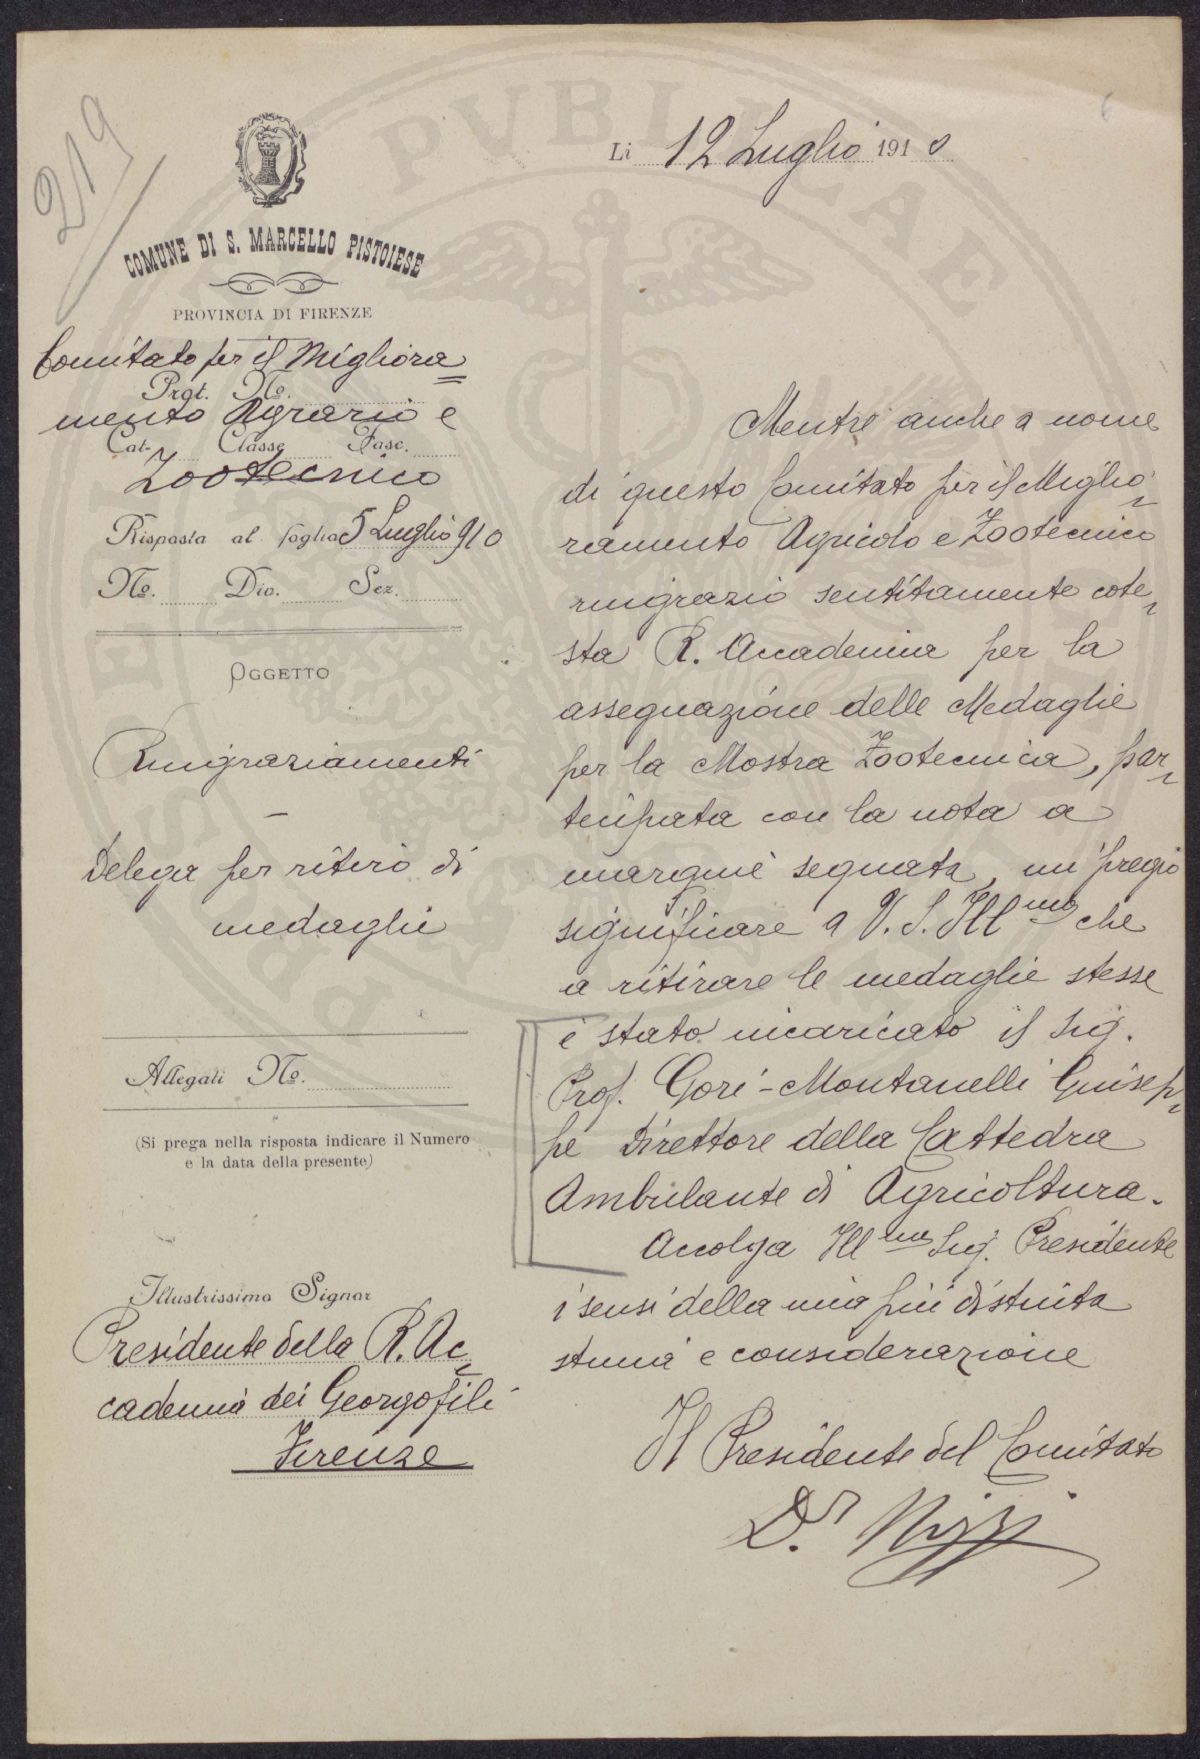 219
6
Li 12 Luglio 1910
COMUNE DI S. MARCELLO PISTOIESE
PROVINCIA DI FIRENZE
Comitato per il Migliora=
Prot. No.
mento Agrario e
Cat. Classe Fasc.
Zootecnico
Risposta al foglio 5 Luglio 910
No. Div. Sez.
OGGETTO
Ringraziamenti
—
Delega per ritiro di
medaglie
Allegati No.
(Si prega nella risposta indicare il Numero
e la data della presente)
Illustrissimo Signor
Presidente della R. Ac=
cademia dei Georgofili
Firenze
Mentre anche a nome
di questo Comitato per il Miglio=
ramento Agricolo e Zootecnico
ringrazio sentitamente cote=
sta R. Accademia per la
assegnazione delle Medaglie
per la Mostra Zootecnica, par=
tecipata con la nota a
margine segnata, mi pregio
significare a V. S. Ill.mo che
a ritirare le medaglie stesse
è stato incaricato il Sig.
Prof. Gori-Montanelli Guisep=
pe Direttore della Cattedra
Ambulante di Agricoltura.
Accolga Ill.mo Sig. Presidente
i sensi della mia più distinta
stima e considerazione
Il Presidente del Comitato
D.r Nizzi
PVBLICAE